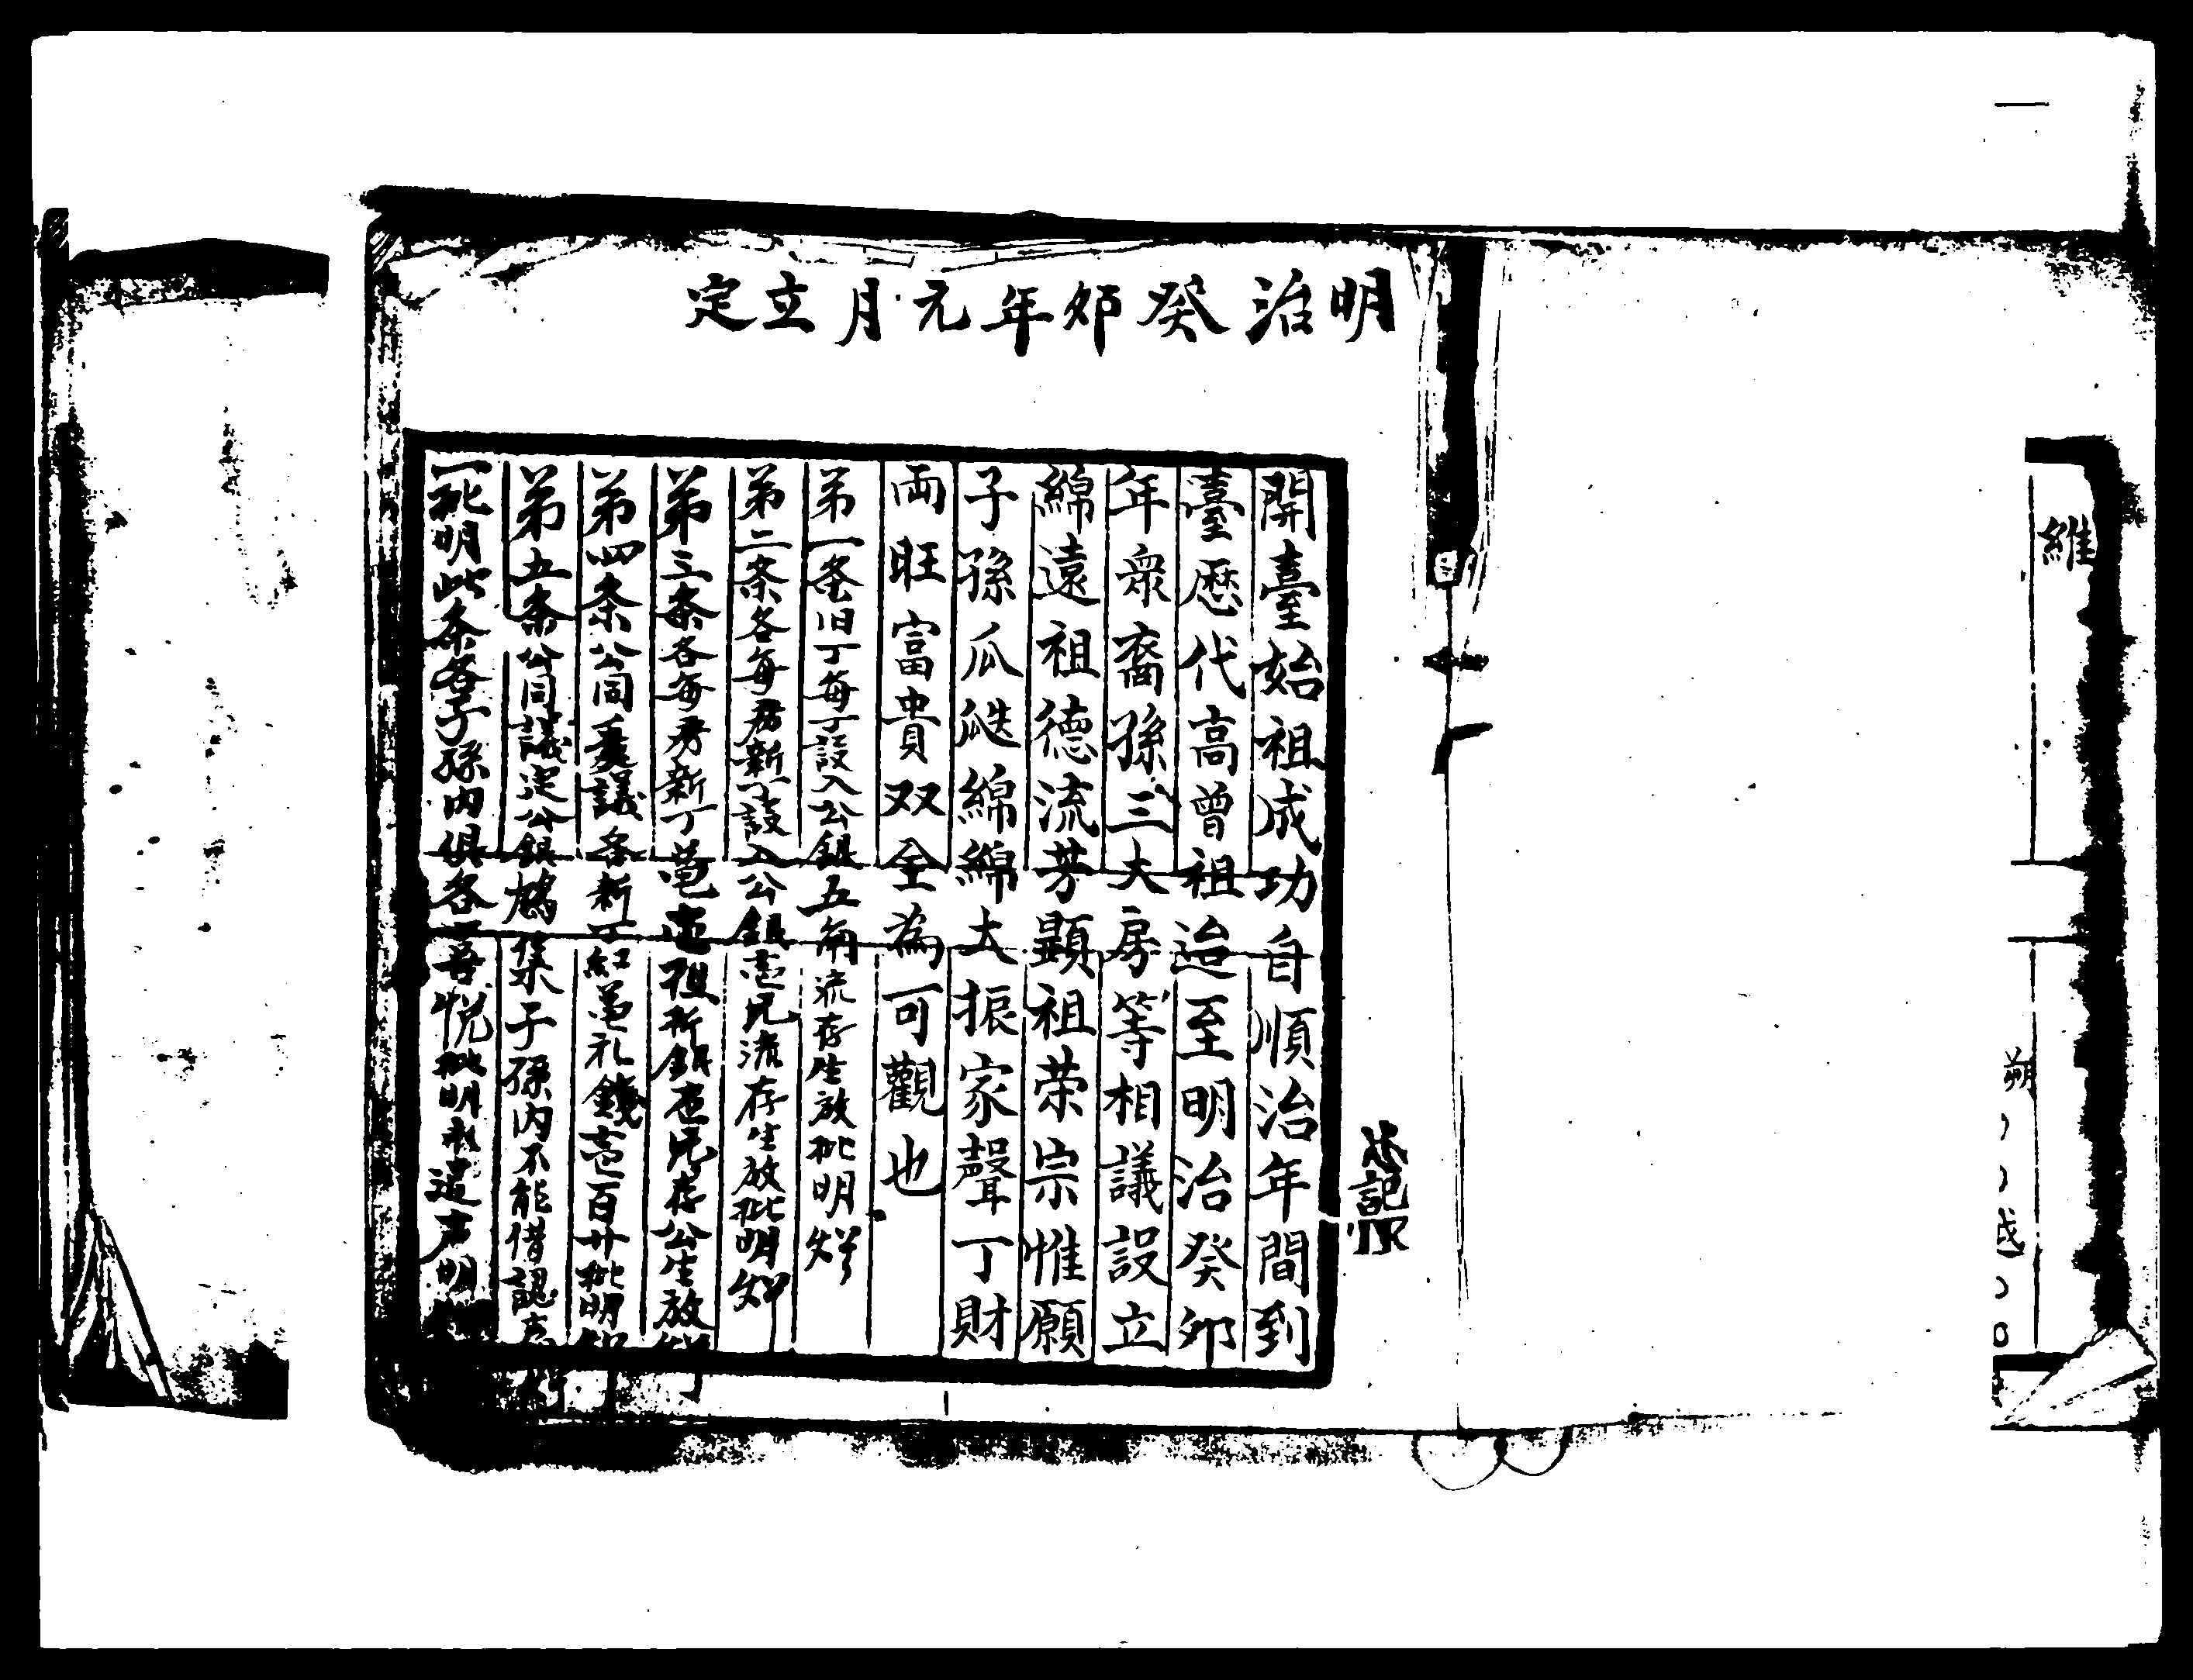 明治癸卯年元月立定
開臺始祖成功自順治年間到
臺歷代高曾祖迨至明治癸卯
年衆裔孫三大房等相議設立
綿遠祖德流芳顯祖荣宗惟願
子孫瓜瓞綿綿大振家聲丁財
両旺富貴双全為可觀也
第一条旧丁每丁設入公銀五角流存生放批明炤
第二条各每房新丁設入公銀壱元流存生放批明炤
第三条各每房新丁黽壱祖折銀壱元存公生放
第四条公同妥議各新丁紅黽礼錢壱百廿批明
第五条公同議定公銀鳩集子孫内不能借認
一批明此条各子孫内俱各喜悦批明声明
記
維
朔